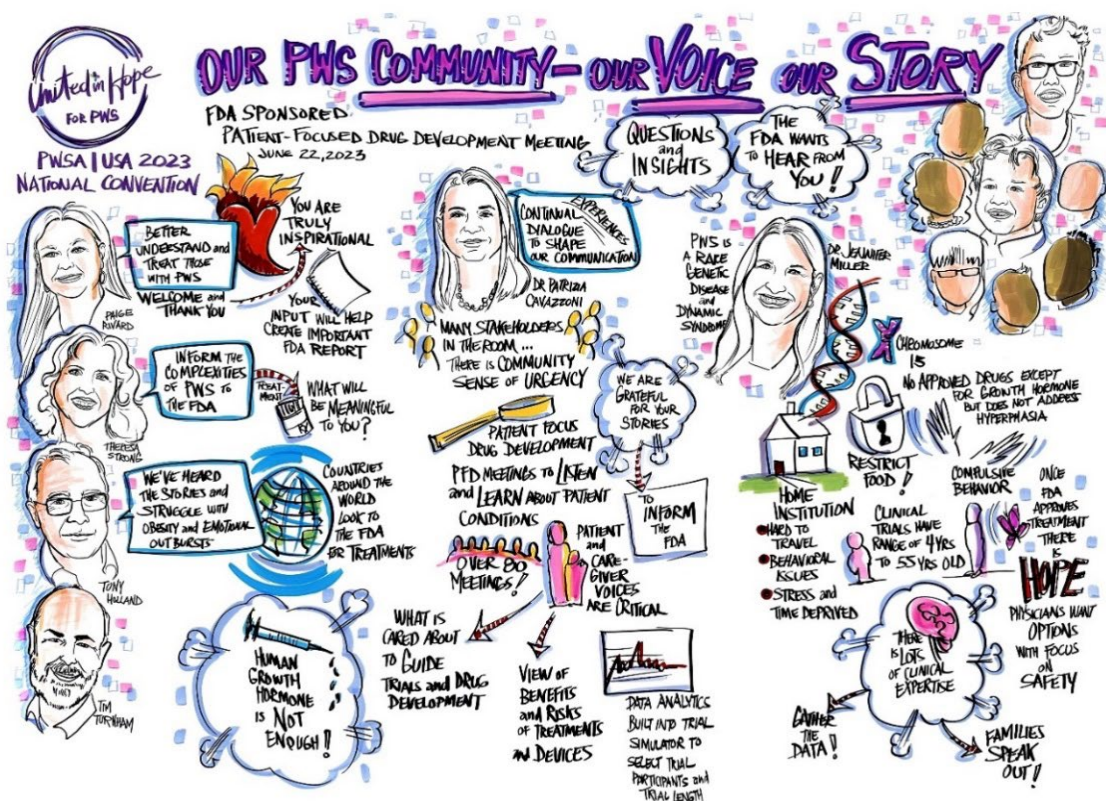 United in Hope
FOR PWS
PWSA | USA 2023
NATIONAL CONVENTION
OUR PWS COMMUNITY - OUR VOICE OUR STORY
FDA SPONSORED
PATIENT-FOCUSED DRUG DEVELOPMENT MEETING
JUNE 22, 2023
QUESTIONS
and
INSIGHTS
THE
FDA WANTS
TO HEAR FROM
YOU!
BETTER
UNDERSTAND and
TREAT THOSE
WITH PWS
WELCOME and
THANK YOU
PAIGE
RIVARD
YOU ARE
TRULY
INSPIRATIONAL
YOUR
INPUT WILL HELP
CREATE IMPORTANT
FDA REPORT
INFORM THE
COMPLEXITIES
OF PWS TO
THE FDA
THERESA
STRONG
TREAT-
MENT
RX
WHAT WILL
BE MEANINGFUL
TO YOU?
WE'VE HEARD
THE STORIES and
STRUGGLE WITH
OBESITY and EMOTIONAL
OUTBURSTS
TONY
HOLLAND
COUNTRIES
AROUND THE
WORLD
LOOK TO
THE FDA
FOR TREATMENTS
TIM
TURNHAM
HUMAN
GROWTH
HORMONE
IS NOT
ENOUGH!!
CONTINUAL
EXPERIENCES
DIALOGUE
TO SHAPE
OUR COMMUNICATION
DR PATRIZIA
CAVAZZONI
MANY STAKEHOLDERS
IN THE ROOM...
THERE IS COMMUNITY
SENSE OF URGENCY
WE ARE
GRATEFUL
FOR YOUR
STORIES
TO
INFORM
THE
FDA
PATIENT FOCUS
DRUG DEVELOPMENT
PFD MEETINGS TO LISTEN
and LEARN ABOUT PATIENT
CONDITIONS
OVER 80
MEETINGS!
PATIENT
and
CARE-
GIVER
VOICES
ARE CRITICAL
WHAT IS
CARED ABOUT
TO GUIDE
TRIALS and DRUG
DEVELOPMENT
VIEW OF
BENEFITS
and RISKS
OF TREATMENTS
and DEVICES
DATA ANALYTICS
BUILT INTO TRIAL
SIMULATOR TO
SELECT TRIAL
PARTICIPANTS and
TRIAL LENGTH
PWS IS
A RARE
GENETIC
DISEASE
and
DYNAMIC
SYNDROME
DR JENNIFER
MILLER
CHROMOSOME
15
NO APPROVED DRUGS EXCEPT
FOR GROWTH HORMONE
BUT DOES NOT ADDRESS
HYPERPHAGIA
RESTRICT
FOOD!
COMPULSIVE
BEHAVIOR
HOME
INSTITUTION
HARD TO
TRAVEL
BEHAVIORAL
ISSUES
STRESS and
TIME DEPRIVED
CLINICAL
TRIALS HAVE
RANGE OF 4 YRS
TO 55 YRS OLD
ONCE
FDA
APPROVES
TREATMENT
THERE IS
HOPE
PHYSICIANS WANT
OPTIONS
WITH FOCUS
ON
SAFETY
THERE
IS LOTS
OF CLINICAL
EXPERTISE
GATHER
THE
DATA!
FAMILIES
SPEAK
OUT!